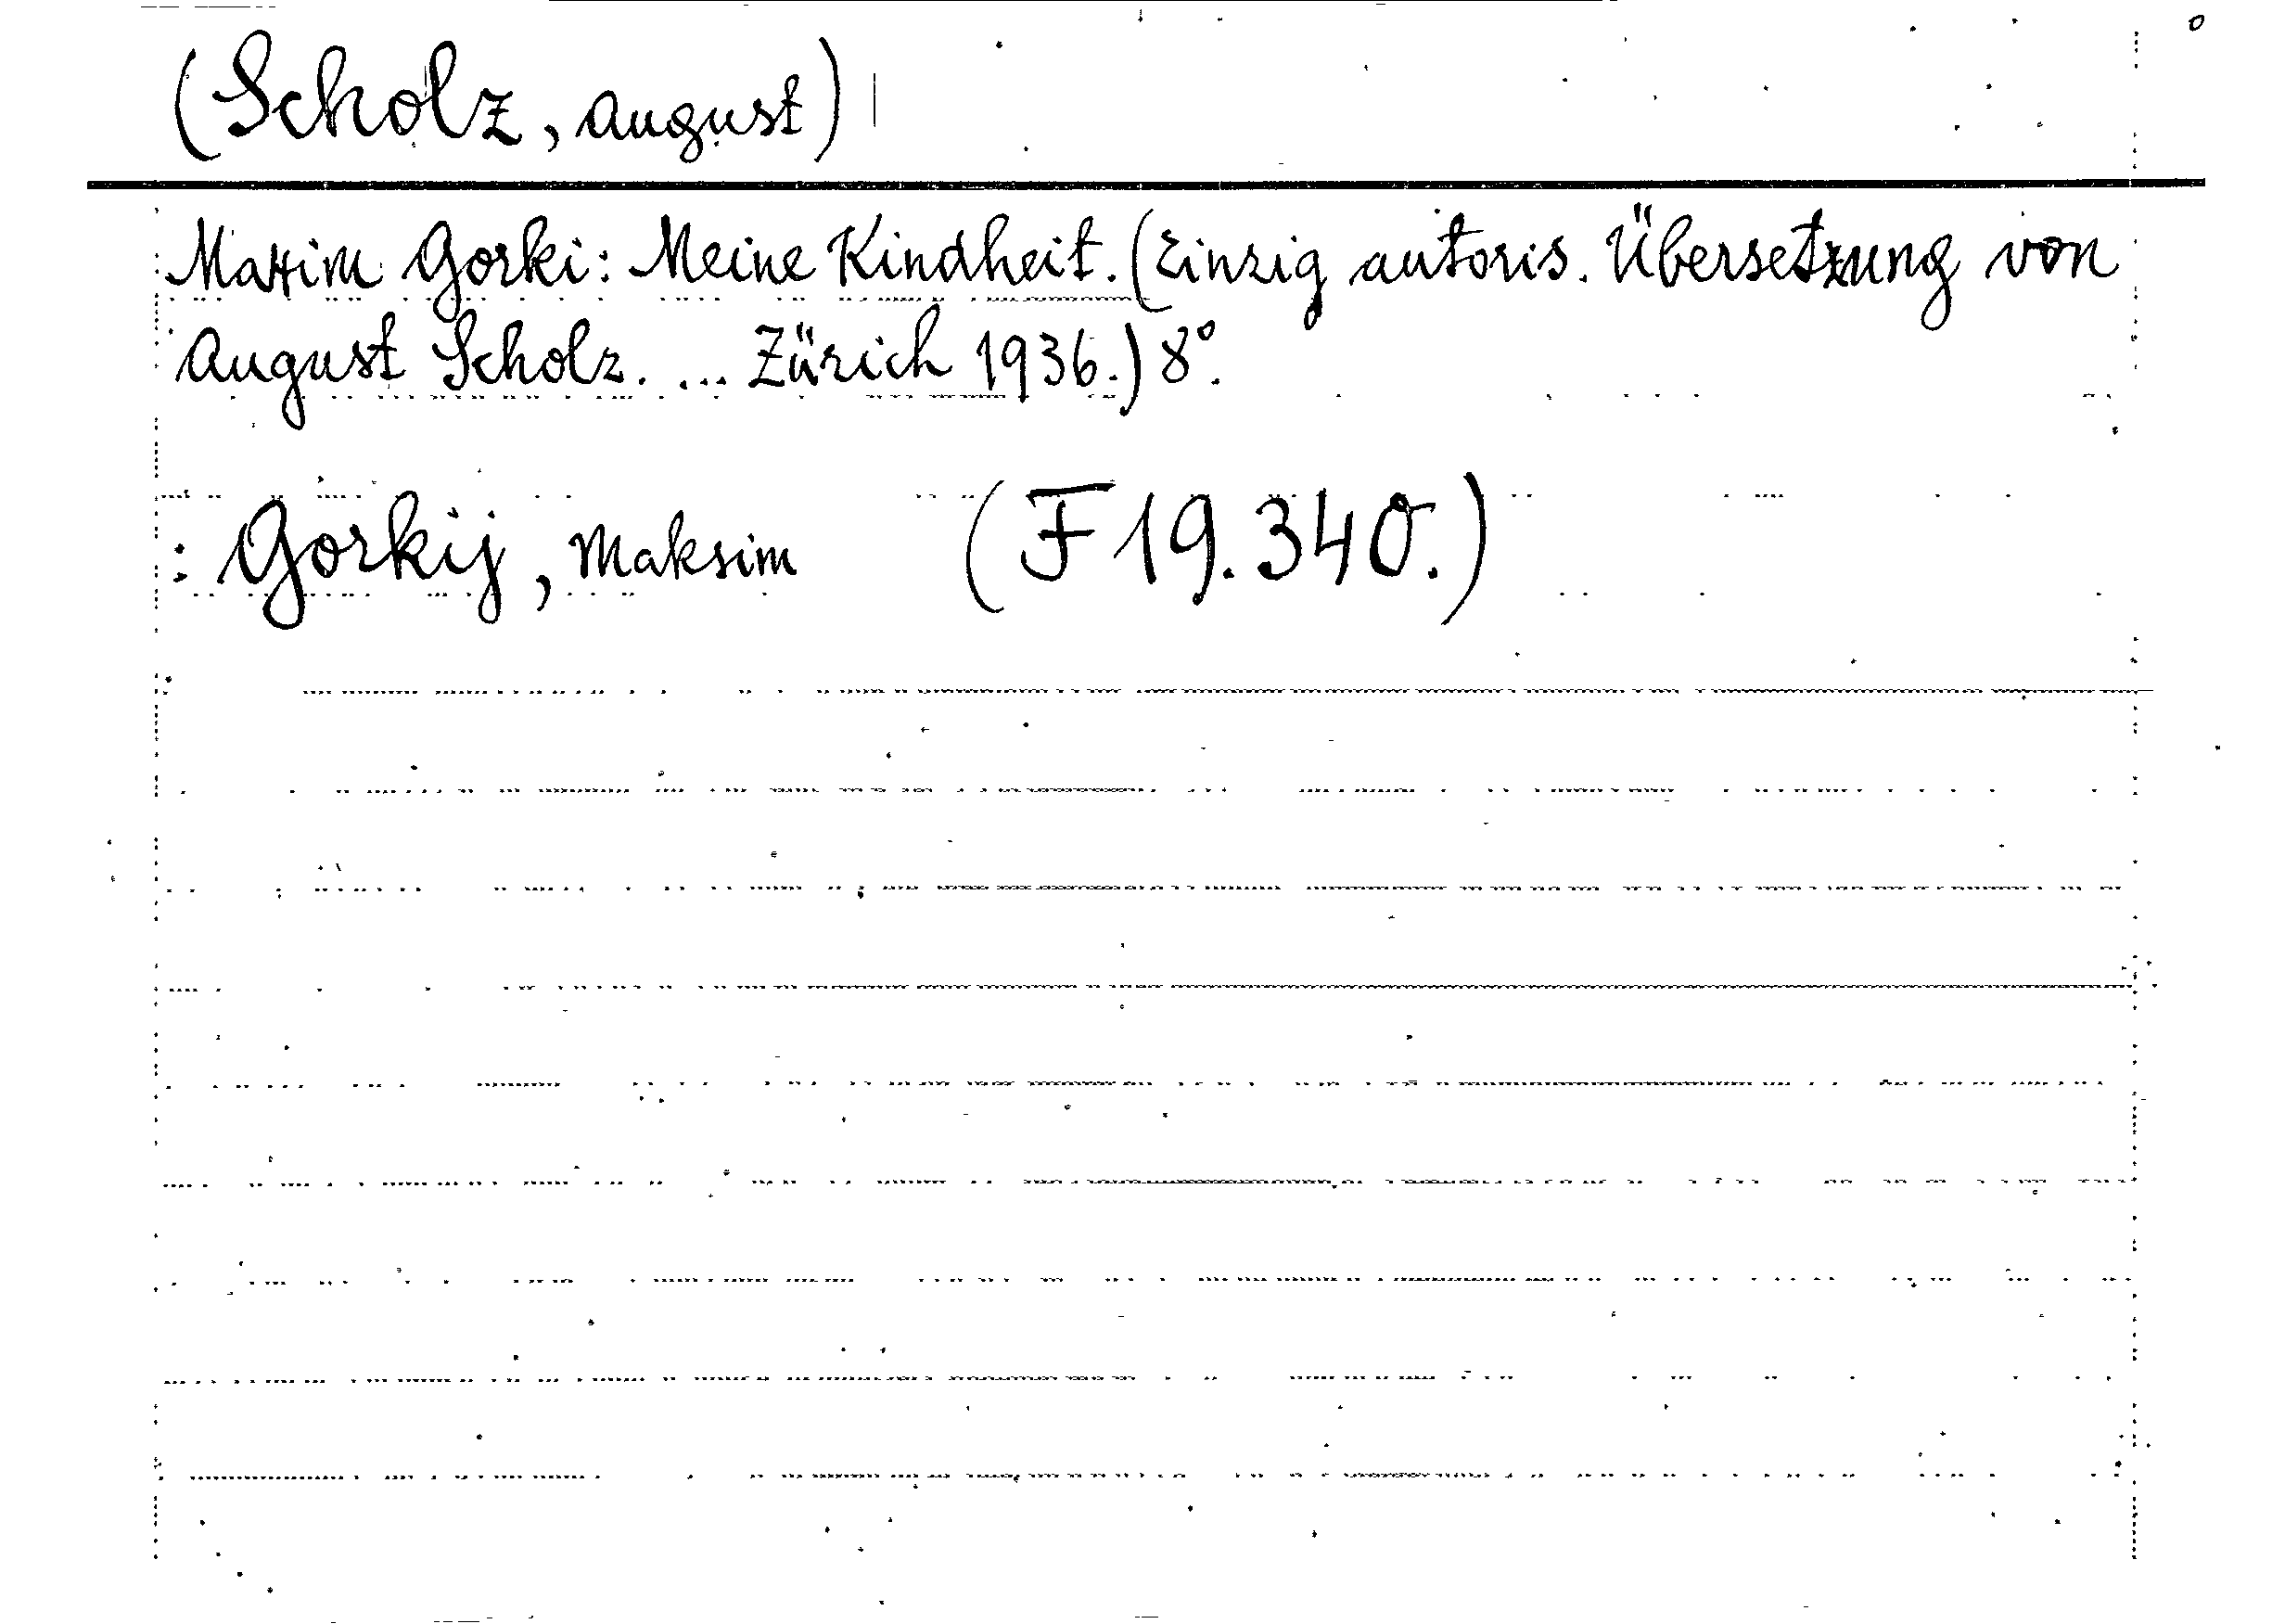 (Scholz, August)
Maxim Gorki: Meine Kindheit. (Einzig autoris. Übersetzung von
August Scholz. ... Zürich 1936.) 8°.
: Gorkij, Maksim (F 19.340.)